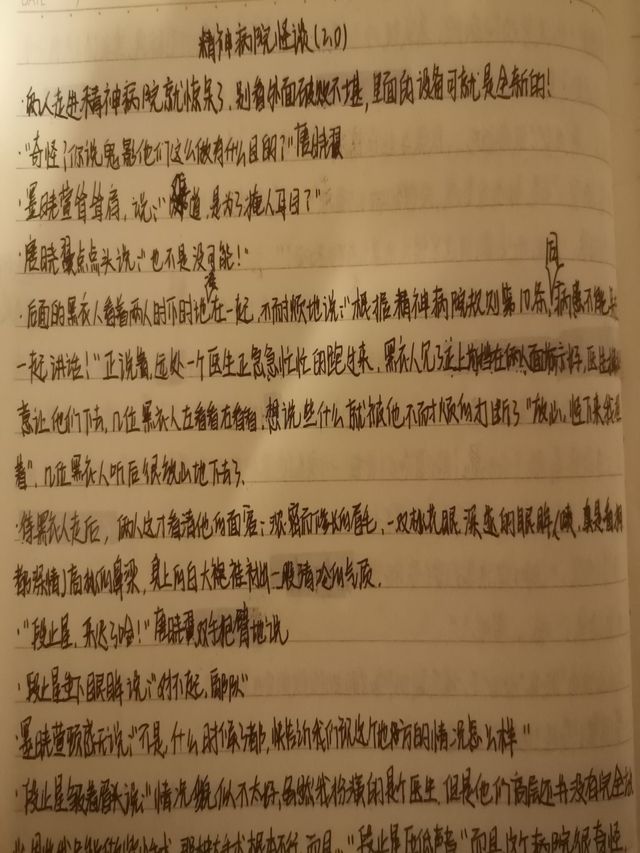 DATE
精神病院怪谈(2.0)
·两人走进精神病院就惊呆了,别看外面破败不堪,里面的设备可都是全新的!
·"奇怪了,你说鬼影他们这么做有什么目的?"唐晓翼
·墨晓萱耸耸肩,说:"难道,是为了掩人耳目?"
·唐晓翼点点头说:"也不是没可能!"
·后面的黑衣人看着两人时不时地凑在一起,不耐烦地说:"根据精神病院规则第10条,同病患不能
一起讲话!"正说着,远处一个医生正急急忙忙的跑过来,黑衣人见了
意让他们下去,几位黑衣人左看看右看看,想说些什么就被他不耐烦的打断了"放心,接下来我
着",几位黑衣人听后很放心地下去了.
·待黑衣人走后,两人这才看清他的面容:浓密而修长的眉毛,一双桃花眼,深蓝的眼眸(哦,真是
高挑的鼻梁,身上的白大袍衬出一股清冷的气质.
·"段止星,来迟了哈!"唐晓翼双手抱臂地说
·段止星垂下眼眸说:"对不起,副队"
·墨晓萱说:"不是,什么时候了都,快告诉我们现这个地方的情况怎么样"
·段止星皱着眉头说:"情况貌似不太好,虽然我扮演的是个医生.但是他们高层还并没有完全
根本不行,而且.."段止星压低声音"而且这个病院很奇怪,